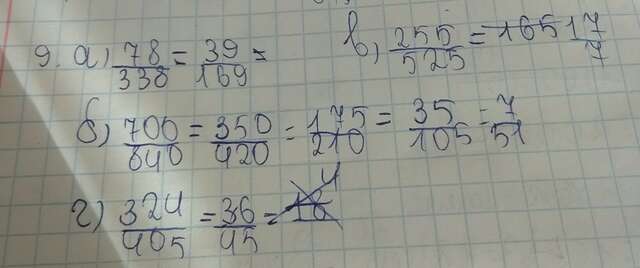 9. а) 78/338 = 39/169 = в) 255/525 = 165 17/7
б) 700/840 = 350/420 = 175/210 = 35/105 = 7/51
г) 324/405 = 36/45 = 4